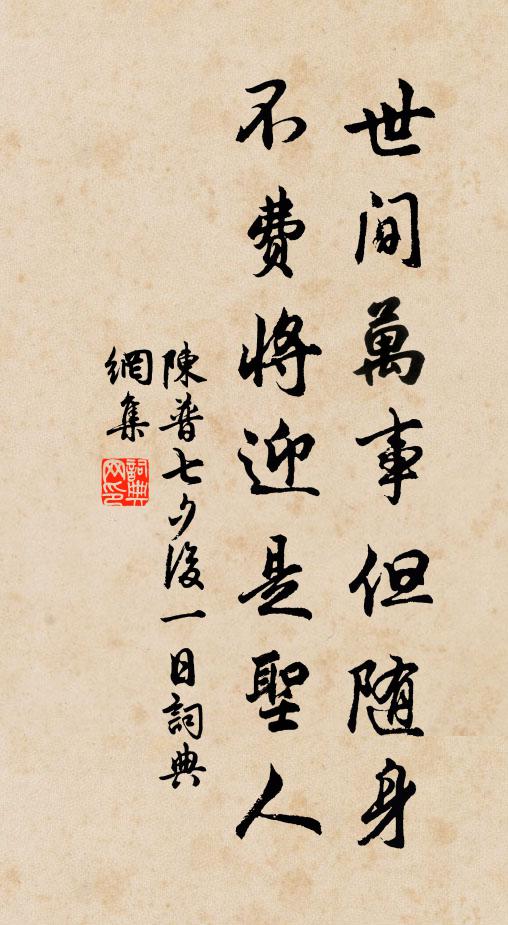 世间萬事但随身
不費將迎是聖人
陳普七夕後一日詞典
網集
詞典網印